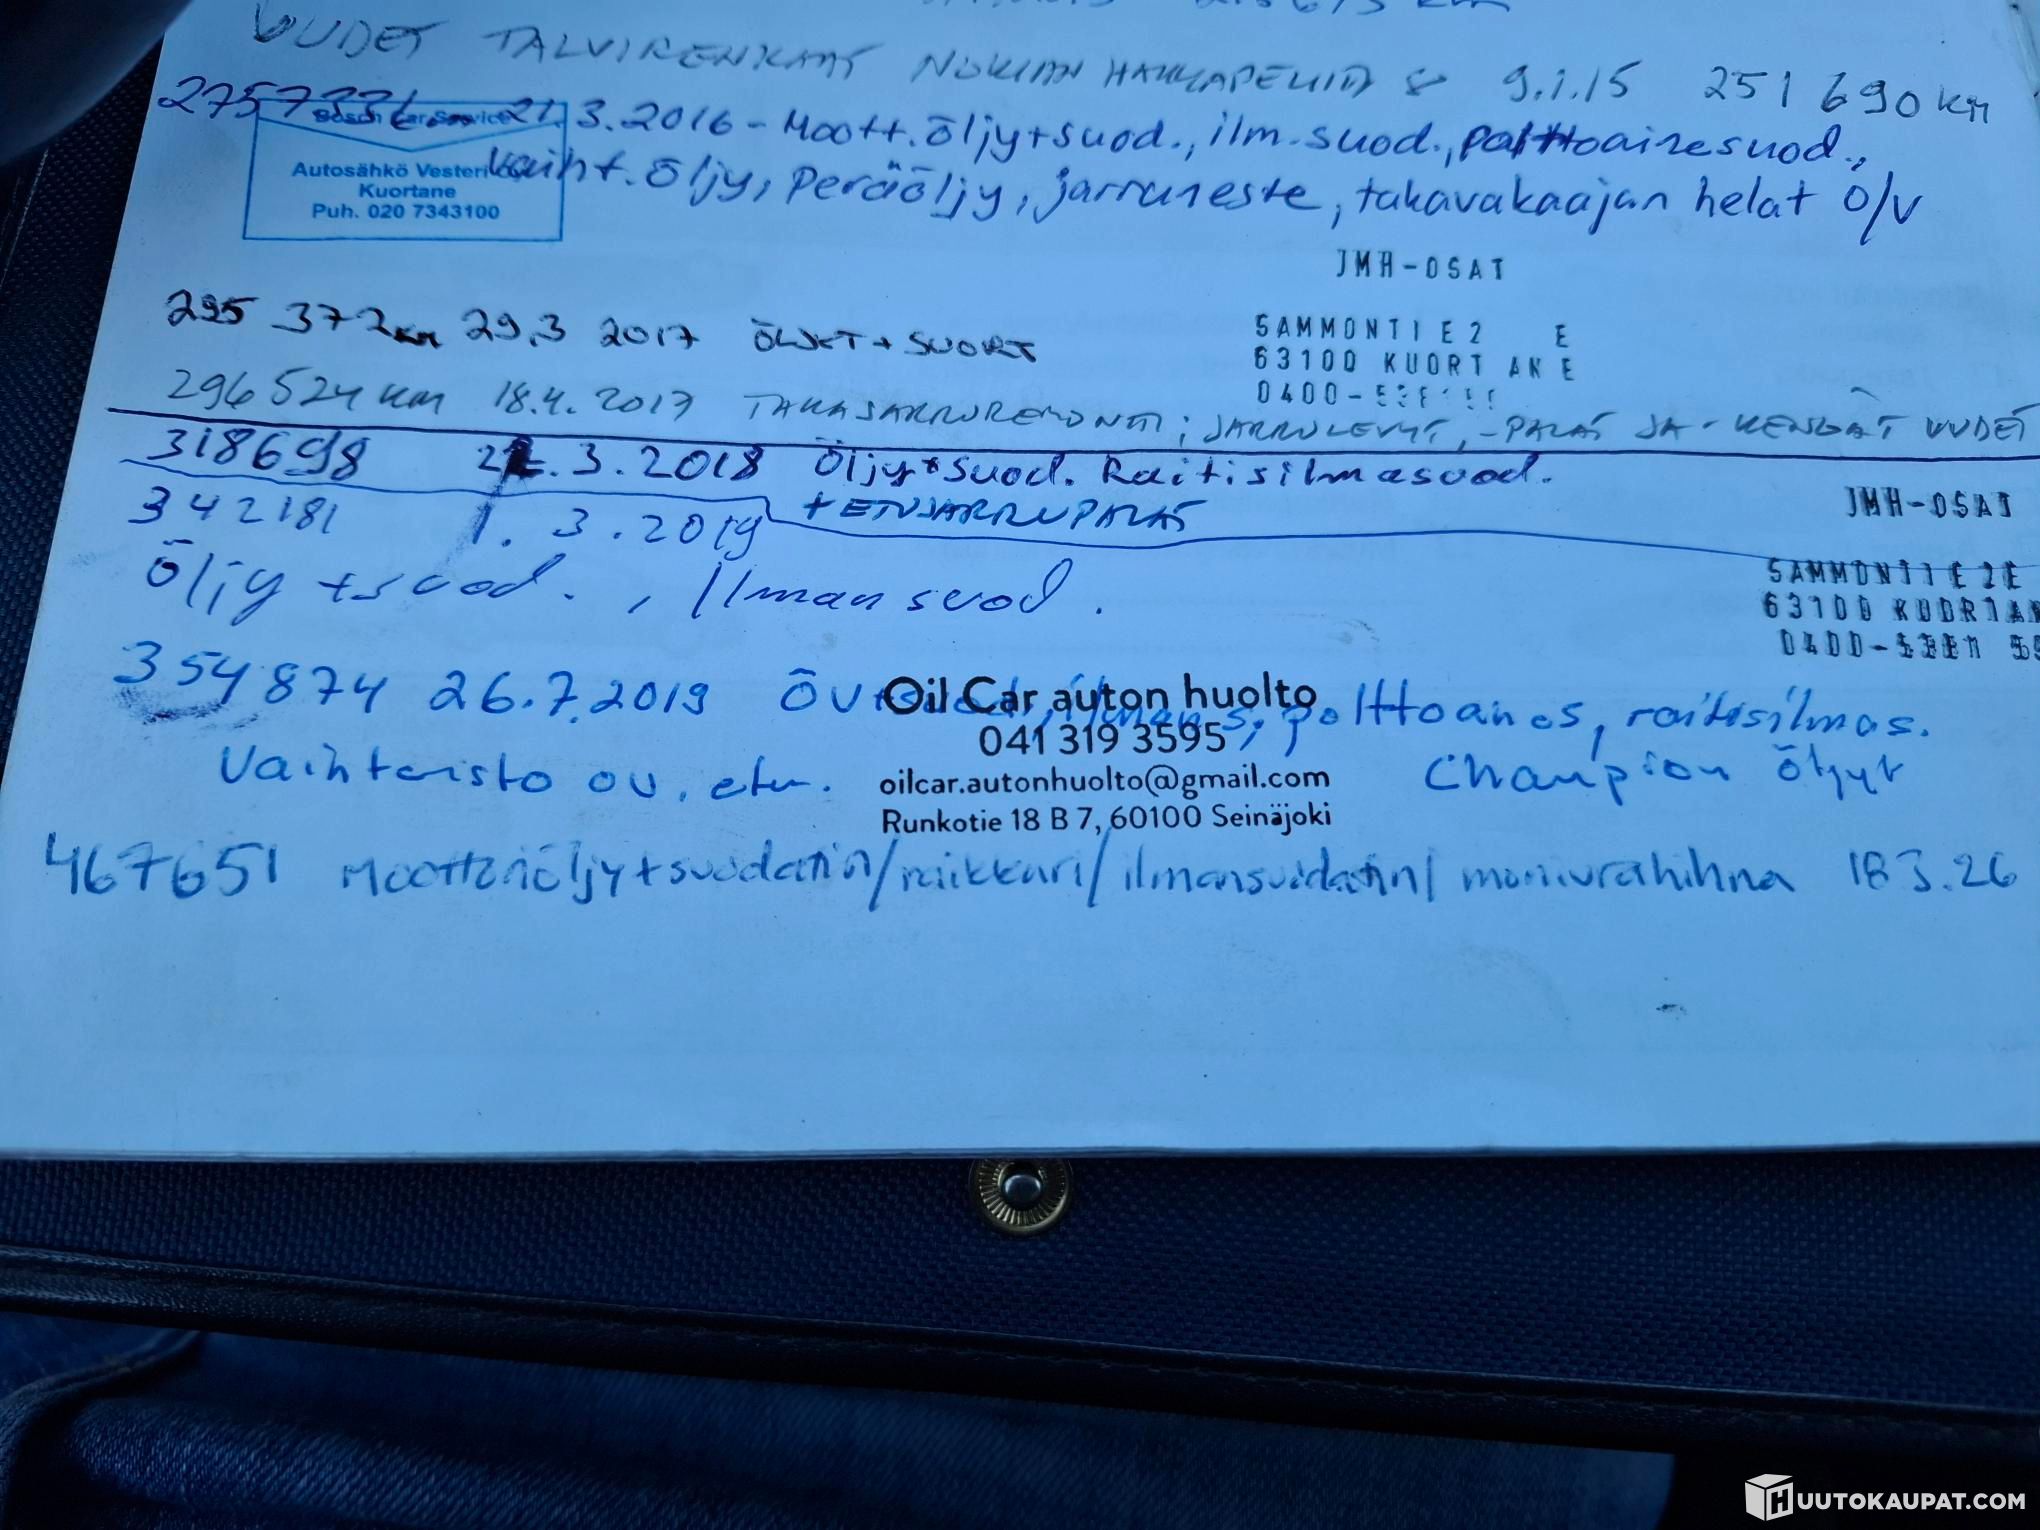 UUDET TALVIRENKAAT NOKIAN HAKKAPELIITTA 8 9.1.15 251 690 KM
21.3.2016 - Moott.öljy+suod., ilm.suod., polttoainesuod.,
Vaiht.öljy, Peräöljy, jarruneste, takavakaajan helat o/v
Bosch Car Service
Autosähkö Vesteri
Kuortane
Puh. 020 7343100
JMH-OSAT
SAMMONTIE 2 E
63100 KUORTANE
0400-
295 372 km 29.3 2017 ÖLJYT + SUORT
296 524 KM 18.4. 2017 TAKAJARRUREMONTTI; JARRULEVYT, -PALAT JA -KENGÄT UUDET
318698 .3.2018 Öljy+suod. Raitisilmasuod.
+ ETUJARRUPALAT
JMH-OSAT
342181 1.3.2019
Öljy +suod., Ilmansuod.
SAMMONTIE 2E
63100 KUORTAN
0400-
354874 26.7.2019 polttoaines, raitisilmas.
Vaihteisto ov. etu. Champion öljyt
Oil Car auton huolto
041 319 3595
oilcar.autonhuolto@gmail.com
Runkotie 18 B 7, 60100 Seinäjoki
467651 Moottoriöljy+suodatin/raikkari/ilmansuodatin/moniurahihna 18 3.26
HUUTOKAUPAT.COM